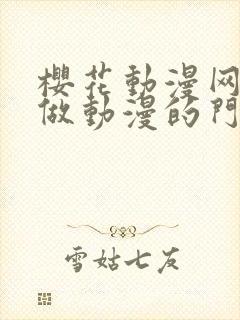 櫻花動漫网
做動漫的門
雪姑七友